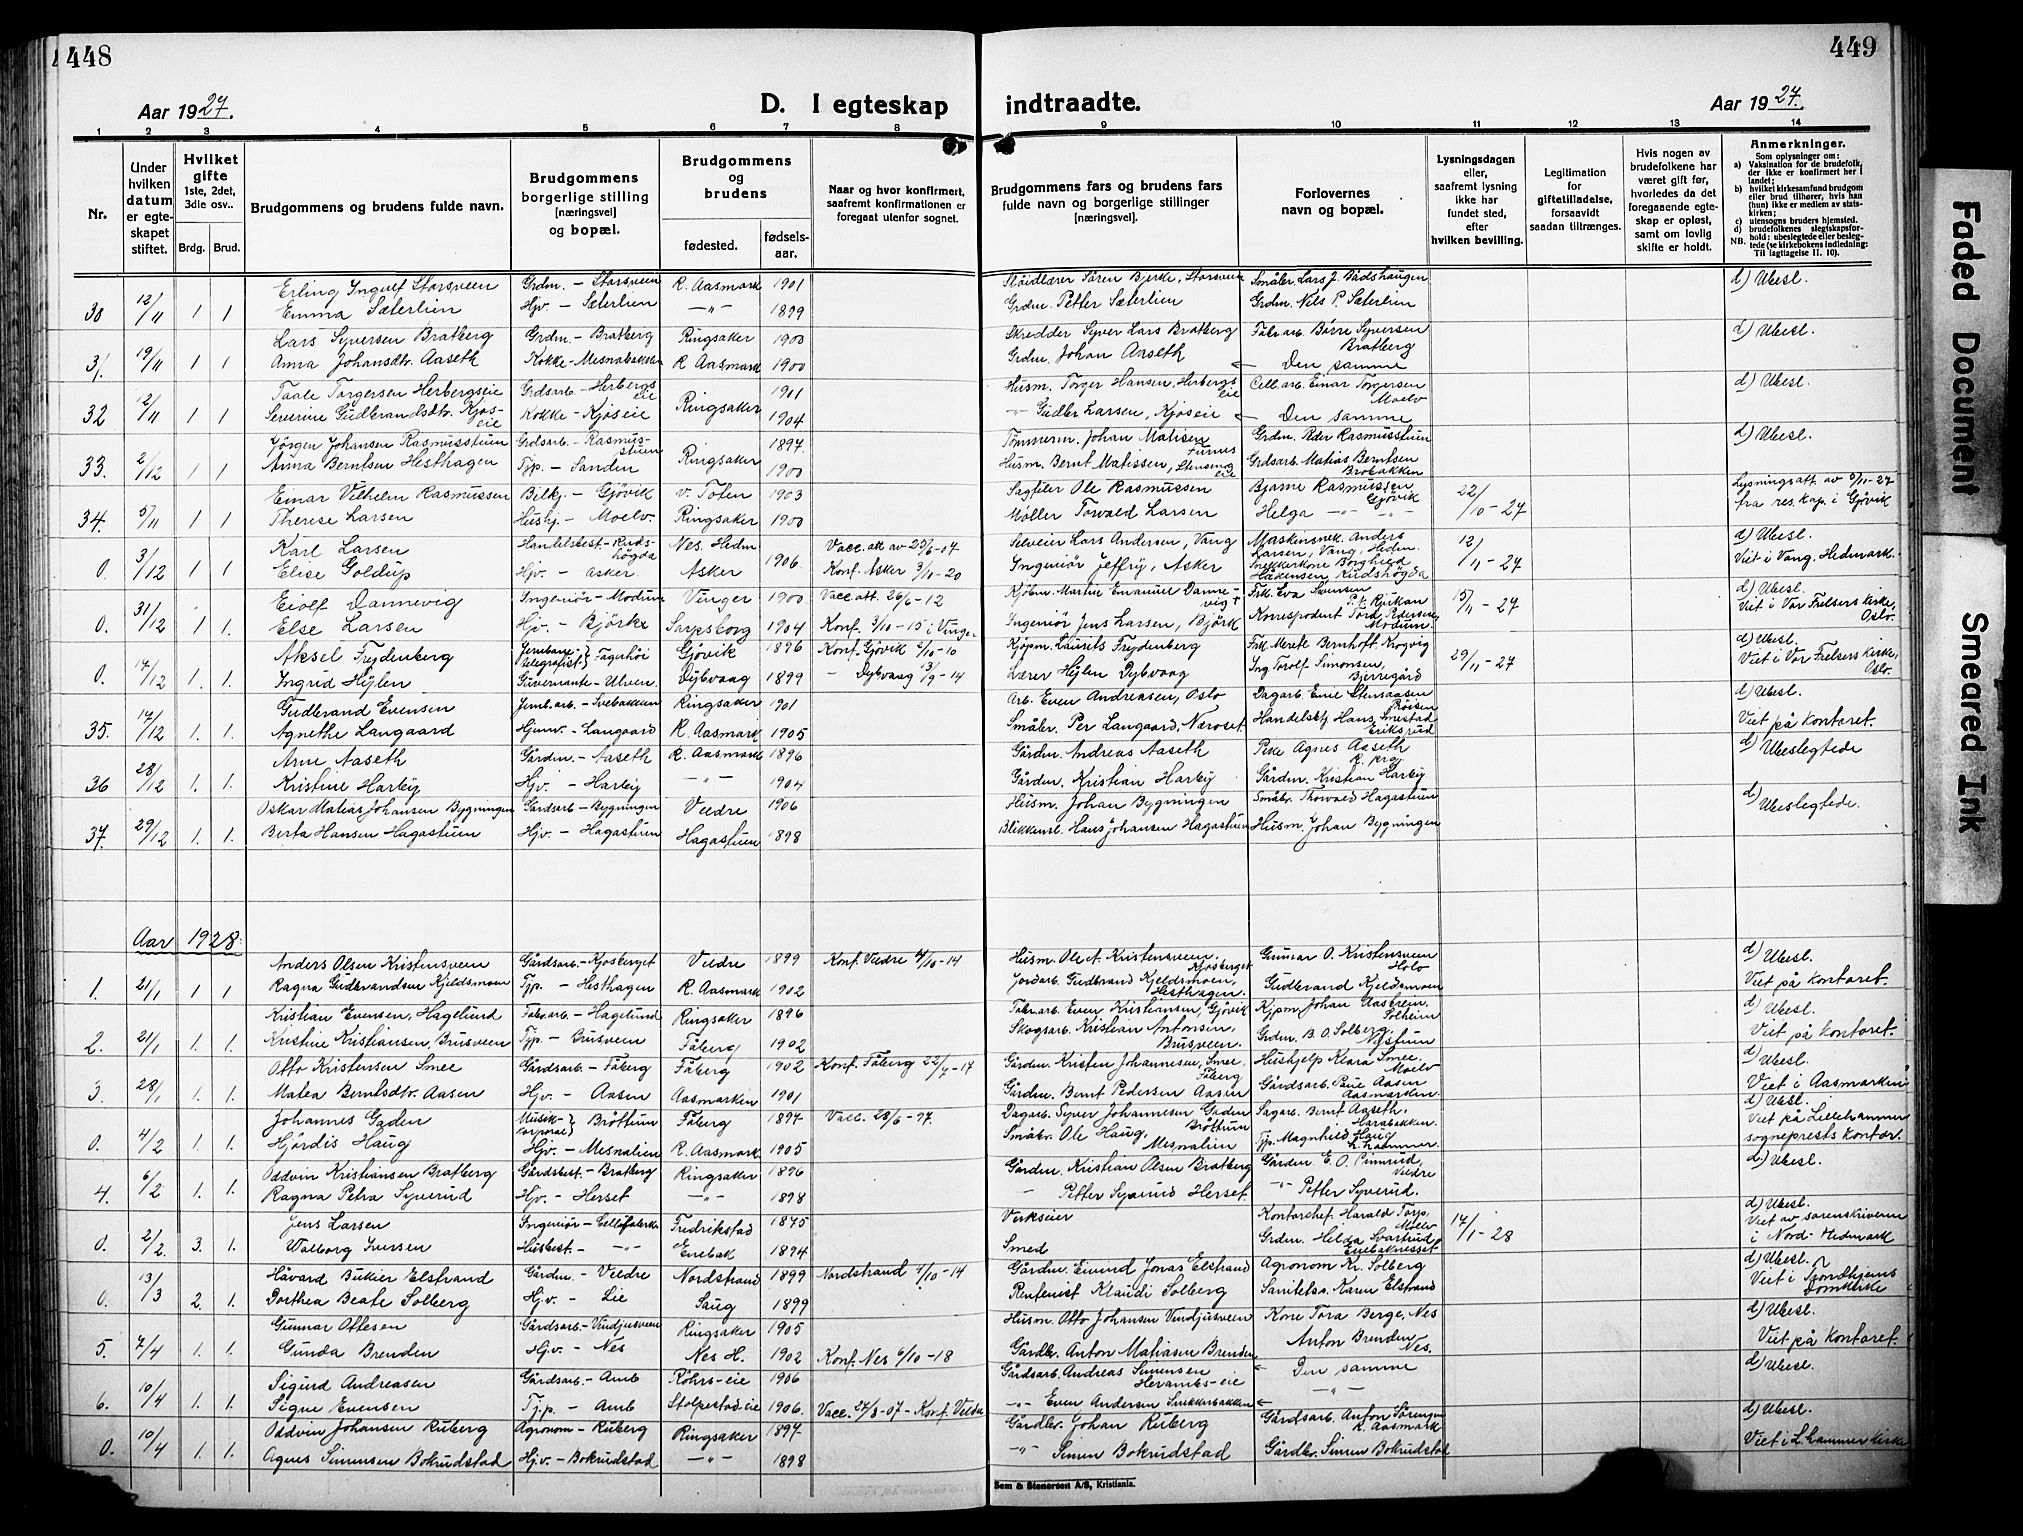 448
449
Aar 1927.
D. I egteskap
indtraadte.
Aar 1927.
1 2 3 4 5 6 7 8 9 10 11 12 13 14
Nr.
Under hvilken datum er egteskapet stiftet.
Hvilket gifte 1ste, 2det, 3die osv..
Brdg. Brud.
Brudgommens og brudens fulde navn.
Brudgommens borgerlige stilling [næringsvei] og bopæl.
Brudgommens og brudens
fødested.
fødselsaar.
Naar og hvor konfirmert, saafremt konfirmationen er foregaat utenfor sognet.
Brudgommens fars og brudens fars fulde navn og borgerlige stillinger [næringsvei].
Forlovernes navn og bopæl.
Lysningsdagen eller, saafremt lysning ikke har fundet sted, efter hvilken bevilling.
Legitimation for giftetilladelse, forsaavidt saadan tiltrænges.
Hvis nogen av brudefolkene har været gift før, hvorledes da det foregaaende egteskap er opløst, samt om lovlig skifte er holdt.
Anmerkninger.
Som oplysninger om:
a) Vaksination for de brudefolk, der ikke er konfirmert her i landet;
b) hvilket kirkesamfund brudgom eller brud tilhører, hvis han (hun) ikke er medlem av statskirken;
c) utensogns bruders hjemsted.
d) brudefolkenes slegtskapsforhold: ubeslegtede eller beslegtede (se kirkebokens indledning:
NB. Til Iagttagelse II. 10).
Erling Ingvlf Storsveen Grdm. - Storsveen R. Aasmark 1901 Sløidlærer Sören Bjerke, Storsveen Småbr. Lars J. Bådshaugen d) Ubesl.
30 12/11 1 1 Emma Sæterlien Hjv. - Sæterlien -"- 1899 Grdm. Petter Sæterlien Grdm. Nils P. Sæterlien
Lars Syversen Bratberg Grdm. - Bratberg Ringsaker 1900 Skredder Syver Lars Bratberg Fabr.arb. Børre Syversen Bratberg d) Ubesl.
31. 19/11 1 1 Anna Johansdtr. Aaseth Kokke - Mesnabakken R. Aasmark 1900 Grdm. Johan Aaseth Den samme
Taale Torgersen Herbergseie Grdsarb. - Herbergseie 1901 Husm. Torger Hansen, Herbergseie Cell.arb. Einar Torgersen Moelv d) Ubesl.
32 2/11 1 1 Severine Gudbrandsdtr. Kjoseie Kokke - Kjoseie Ringsaker 1904 -"- Gudbr. Larsen, Kjoseie Den samme
Jörgen Johansen Rasmusstuen Grdsarb. - Rasmusstuen 1897. Tømmerm. Johan Matisen Furnes Grdm. Peder Rasmusstuen d) Ubesl.
33. 2/12 1 1 Anna Berntsen Hesthagen Tjp. - Sanden Ringsaker 1900 Husm. Bernt Matissen, Stensengeie Grdsarb. Matias Berntsen Brobakken
Einar Vilhelm Rasmussen Bilkj. - Gjövik v. Toten 1903 Sagfiler Ole Rasmussen Bjarne Rasmussen Gjövik 22/10-27 Lysningsatt. av 5/11-27
34. 5/11 1 1 Therese Larsen Hushj. - Moelv. Ringsaker 1900 Møller Torvald Larsen Helga -"- -"- fra res. kap. i Gjövik
Karl Larsen Handelsbest. - Rudshögda Nes. Hedm Selveier Lars Andersen, Vang Maskinsnek. Anders Larsen, Vang, Hedm. 12/11-27 d) Ubesl.
0. 3/12 1 1 Elise Goldup Hjv. - Asker. Asker 1906. Konf. Asker 3/10-20 Ingeniör Jeffrij, Asker Snekkerkone Borghild Håkensen Rudshögda Viet i Vang. Hedmark.
Eiolf Dannevig Ingeniör - Modum Vinger 1900 Vacc.att. 26/6-12 Kjöbm. Martin Emanuel Dannevig + Frk. Eva Svensen P.t. Rjukan 15/11-27 d) Ubesl.
0. 31/12 1 1. Else Larsen Hjv. - Björke Sarpsborg 1904 Konf. 3/10-15 i Vinger Ingeniör Jens Larsen, Björk Korrespondent Tord Pedersen, Modum Viet i Vor Frelsers Kirke, Oslo.
Aksel Frydenberg Jernbane telegrafist} Fagerhöi Gjövik 1896 Konf. Gjövik 2/10-10 Kjøpm. Laurits Frydenberg Frk. Merete Bernhoft Krogvig 29/11-27 d) Ubesl.
0. 17/12 1. 1. Ingrid Hylen Guvernante - Ulven. Dybvaag 1899 - Dybvaag 13/9-14 Lærer Hylen Dybvaag Ing. Torolf Simonsen, Bjerregård Viet i Vor Frelsers Kirke, Oslo.
Gudbrand Evensen Jernb.arb. - Svebakken Ringsaker 1901 Arb. Even Andreasen, Oslo Dagarb. Emil Stensaasen Bröisen d) Ubesl.
35. 17/12 1. 1. Agnethe Langaard Hjemv. - Langaard R. Aasmark 1905 Småbr. Per Langaard, Næroset Handelsbtj. Hans Smestad Eriksrud Viet på kontoret.
Arne Aaseth Gårdm. - Aaseth R. Aasmark 1896 Gårdm. Andreas Aaseth Pike Agnes Aaseth d) Ubeslegtede
36 28/12 1. 1. Kristine Harby Hjv. - Harby -"- 1904 Gårdm. Kristian Harby Gårdm. Kristian Harby
Oskar Matias Johansen Bygningen Gårdsarb - Bygningen Veldre 1906 Husm. Johan Bygningen Småbr. Thorvald Hagastuen d) Ubeslegtede.
37. 29/12 1. 1. Berta Hansen Hagastuen Hjv. - Hagastuen Hagastuen 1898 Blikkensl. Hans Johansen Hagastuen Husm. Johan Bygningen
Aar 1928.
Anders Olsen Kristensveen Gårdsarb. - Kjosberget Veldre 1899 Konf. Veldre 4/10-14 Husm. Ole A. Kristensveen, Kjosberget Gunnar O. Kristensveen Holo d) Ubesl.
1. 21/1 1 1 Ragna Gudbrandsen Kjeldsmoen Tjp. - Hesthagen R. Aasmark 1902 Jordarb. Gudbrand Kjeldsmoen, Hesthagen. Gudbrand Kjeldsmoen Viet på kontoret.
Kristian Evensen, Hagelund Fabr.arb. - Hagelund Ringsaker 1896 Fabr.arb. Even Kristiansen, Gjövik Kjpm. Johan Aasheim Solheim d) Ubesl.
2. 21/1 1. 1. Kristine Kristiansen, Brusveen Tjp. - Brusveen Fåberg 1902 Skogsarb. Kristian Antonsen, Brusveen. Grdm. B. O. Solberg, Næstuen Viet på kontoret.
Otto Kristensen Smee Gårdsarb. - Fåberg Fåberg 1902 Konf. Fåberg 22/7-17 Gårdm. Kristen Johannesen, Smee, Fåberg Hushjelp Klara Smee. Moelv d) Ubesl.
3. 28/1 1. 1. Matea Berntsdtr. Aasen Hjv. - Aasen Aasmarken 1901 Gårdm. Bernt Pedersen Aasen Gårdsarb. Paul Aasen Aasmarken. Viet i Aasmarken
Johannes Gaden Musikkorporal} Bröttum Fåberg 1897 Vacc. 28/6-97. Dagarb. Syver Johannesen Gaden Bröttum Sagarb. Bernt Aaseth. Harabakken. d) Ubesl.
0. 4/2 1. 1. Hjördis Haug Hjv. - Mesnalien R. Aasmark 1905 Småbr. Ole Haug, Mesnalien Tjp. Magnhild Haug L.hammer. Viet på Lillehammer sogneprests kontor.
Oddvin Kristiansen Bratberg Gårdsbest. - Bratberg Ringsaker 1896 Gårdm. Kristian Olsen Bratberg Gårdm. E. O. Cimrud, Veldre d.) Ubesl.
4. 6/2 1. 1. Ragna Petra Syverud Hjv. - Herset -"- 1898 - Petter Syverud Herset. -"- Petter Syverud.
Jens Larsen Ingeniör - Cellfabrikk Fredrikstad 1875 Verkseier Kontorchef Harald Torp, Moelv 14/1-28 d) Ubesl.
0. 2/2. 3. 1. Walborg Iversen Husbest. - -"- Enebak 1894 Smed Grdm. Helda Svartrud Enebaknesset Viet av sorenskriveren i Nord-Hedmark
Håvard Bukier Elstrand Gårdm. - Veldre Nordstrand 1899 Nordstrand 4/10-14 Gårdm. Eivind Jonas Elstrand Agronom Kr. Solberg d) Ubesl.
0. 13/3 2. 1. Dorthea Beate Solberg Hjv. - Lie Saug 1899 Rentenist Klaudi Solberg Sanitetss. Karen Elstrand Viet i Trondhjems Domkirke
Gunnar Ottesen Gårdsarb. - Vindjusveen Ringsaker 1905 Husm. Otto Johansen Vindjusveen Kone Tora Berge, Nes d) Ubesl.
5. 7/4 1. 1. Gunda Brenden Hjv. - Nes Nes H. 1902 Konf. Nes 6/10-18 Gårdbr. Anton Matiasen Brenden Anton Brenden Nes. Viet på kontoret.
Sigurd Andreasen Gårdsarb. - Amb Röhrs-eie 1906 Gårdsarb. Andreas Simensen Herambs-eie Den samme d) Ubesl.
6. 10/4 1. 1. Signe Evensen Tjp. - Amb Stolpestad-eie 1906. Vacc. 27/8-07 - Konf. Veldre -"- Even Andersen Snekkerbakken -"-
Oddvin Johansen Ruberg Agronom - Ruberg Ringsaker 1897 Gårdbr. Johan Ruberg Gårdsarb. Anton Sörensen R. Aasmark d) Ubesl.
0. 10/4 1. 1. Agnes Simensen Bokrudstad Hjv. - Bokrudstad -"- 1898 -"- Simen Bokrudstad Gårdbr. Simen Bokrudstad Viet i L.hammer kirke
Sem & Stenersen A/S, Kristiania.
Faded Document
Smeared Ink